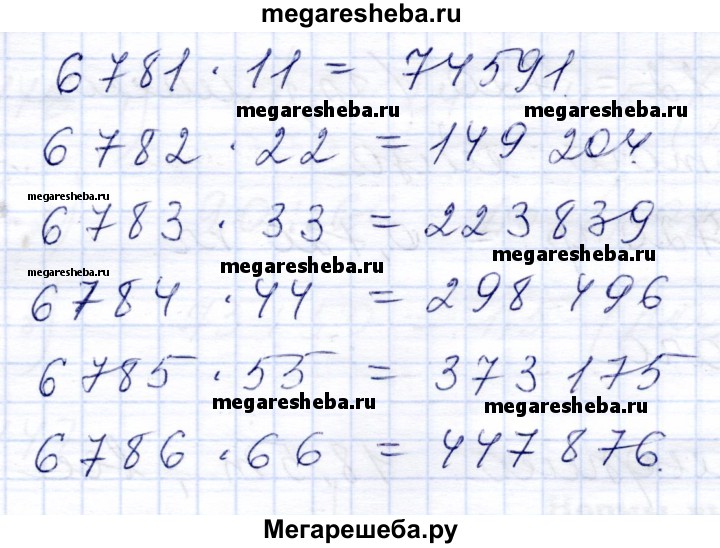 megaresheba.ru
6781 · 11 = 74591.
megaresheba.ru megaresheba.ru
6782 · 22 = 149 204.
megaresheba.ru
6783 · 33 = 223839
megaresheba.ru
megaresheba.ru megaresheba.ru
6784 · 44 = 298 496
6785 · 55 = 373 175
megaresheba.ru megaresheba.ru
6786 · 66 = 447876.
Мегарешеба.ру